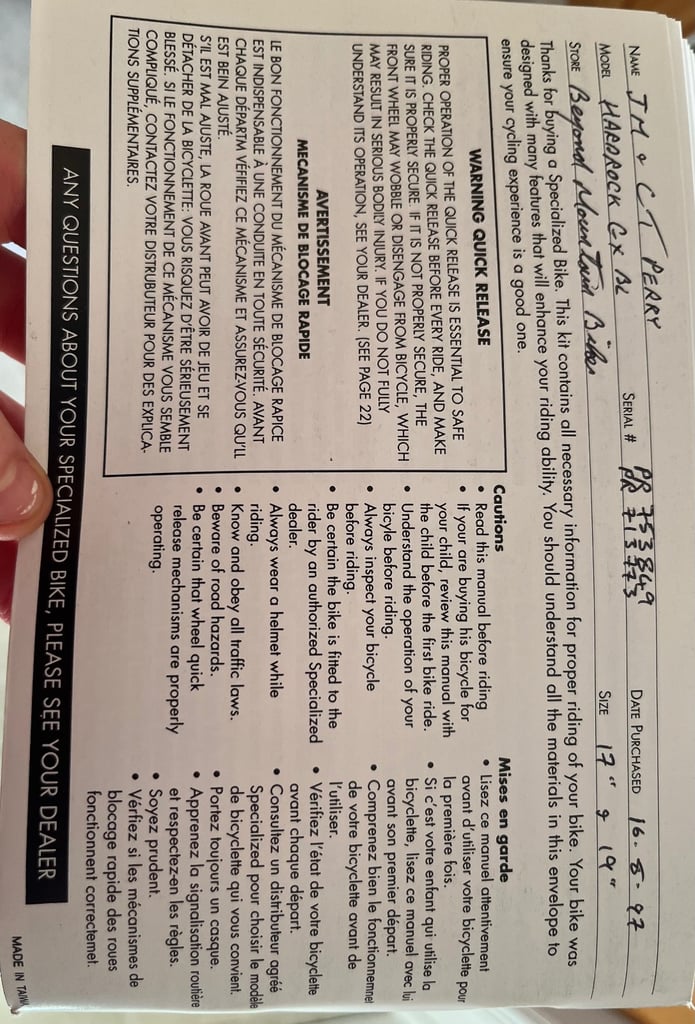 NAME JM & CT PERRY SERIAL # PR 753849 DATE PURCHASED 16-8-97
PR 713773
MODEL HARDROCK GX BL SIZE 17" & 19"
STORE Beyond Mountain Bikes
Thanks for buying a Specialized Bike. This kit contains all necessary information for proper riding of your bike. Your bike was
designed with many features that will enhance your riding ability. You should understand all the materials in this envelope to
ensure your cycling experience is a good one.
WARNING QUICK RELEASE
PROPER OPERATION OF THE QUICK RELEASE IS ESSENTIAL TO SAFE
RIDING. CHECK THE QUICK RELEASE BEFORE EVERY RIDE, AND MAKE
SURE IT IS PROPERLY SECURE. IF IT IS NOT PROPERLY SECURE, THE
FRONT WHEEL MAY WOBBLE OR DISENGAGE FROM BICYCLE, WHICH
MAY RESULT IN SERIOUS BODILY INJURY. IF YOU DO NOT FULLY
UNDERSTAND ITS OPERATION, SEE YOUR DEALER. (SEE PAGE 22)
AVERTISSEMENT
MECANISME DE BLOCAGE RAPIDE
LE BON FONCTIONNEMENT DU MÉCANISME DE BLOCAGE RAPICE
EST INDISPENSABLE À UNE CONDUITE EN TOUTE SÉCURITÉ. AVANT
CHAQUE DÉPARTM VÉFFIEZ CE MÉCANISME ET ASSUREZ-VOUS QU'IL
EST BEIN AJUSTÉ.
S'IL EST MAL AJUSTE, LA ROUE AVANT PEUT AVOIR DE JEU ET SE
DÉTACHER DE LA BICYCLETTE: VOUS RISQUEZ D'ÊTRE SÉRIEUSEMENT
BLESSÉ. SI LE FONCTIONNEMENT DE CE MÉCANISME VOUS SEMBLE
COMPLIQUÉ, CONTACTEZ VOTRE DISTRUBUTEUR POUR DES EXPLICA-
TIONS SUPPLÉMENTAIRES.
Cautions
• Read this manual before riding
• If your are buying his bicycle for
your child, review this manual with
the child before the first bike ride.
• Understand the operation of your
bicyle before riding.
• Always inspect your bicycle
before riding.
• Be certain the bike is fitted to the
rider by an authorized Specialized
dealer.
• Always wear a helmet while
riding.
• Know and obey all traffic laws.
• Beware of road hazards.
• Be certain that wheel quick
release mechanisms are properly
operating.
Mises en garde
• Lisez ce manuel attentivement
avant d'utiliser votre bicyclette pour
la première fois.
• Si c'est votre enfant qui utilise la
bicyclette, lisez ce manuel avec lui
avant son premier départ.
• Comprenez bien le fonctionnemnet
de votre bicyclette avant de
l'utiliser.
• Vérifiez l'état de votre bicyclette
avant chaque départ.
• Consultez un distributeur agréé
Specialized pour choisir le modèle
de bicyclette qui vous convient.
• Portez toujours un casque.
• Apprenez la signalisation routière
et respectez-en les règles.
• Soyez prudent.
• Vérfiez si les mécanismes de
blocage rapide des roues
fonctionnent correctemet.
ANY QUESTIONS ABOUT YOUR SPECIALIZED BIKE, PLEASE SEE YOUR DEALER
MADE IN TAIWAN